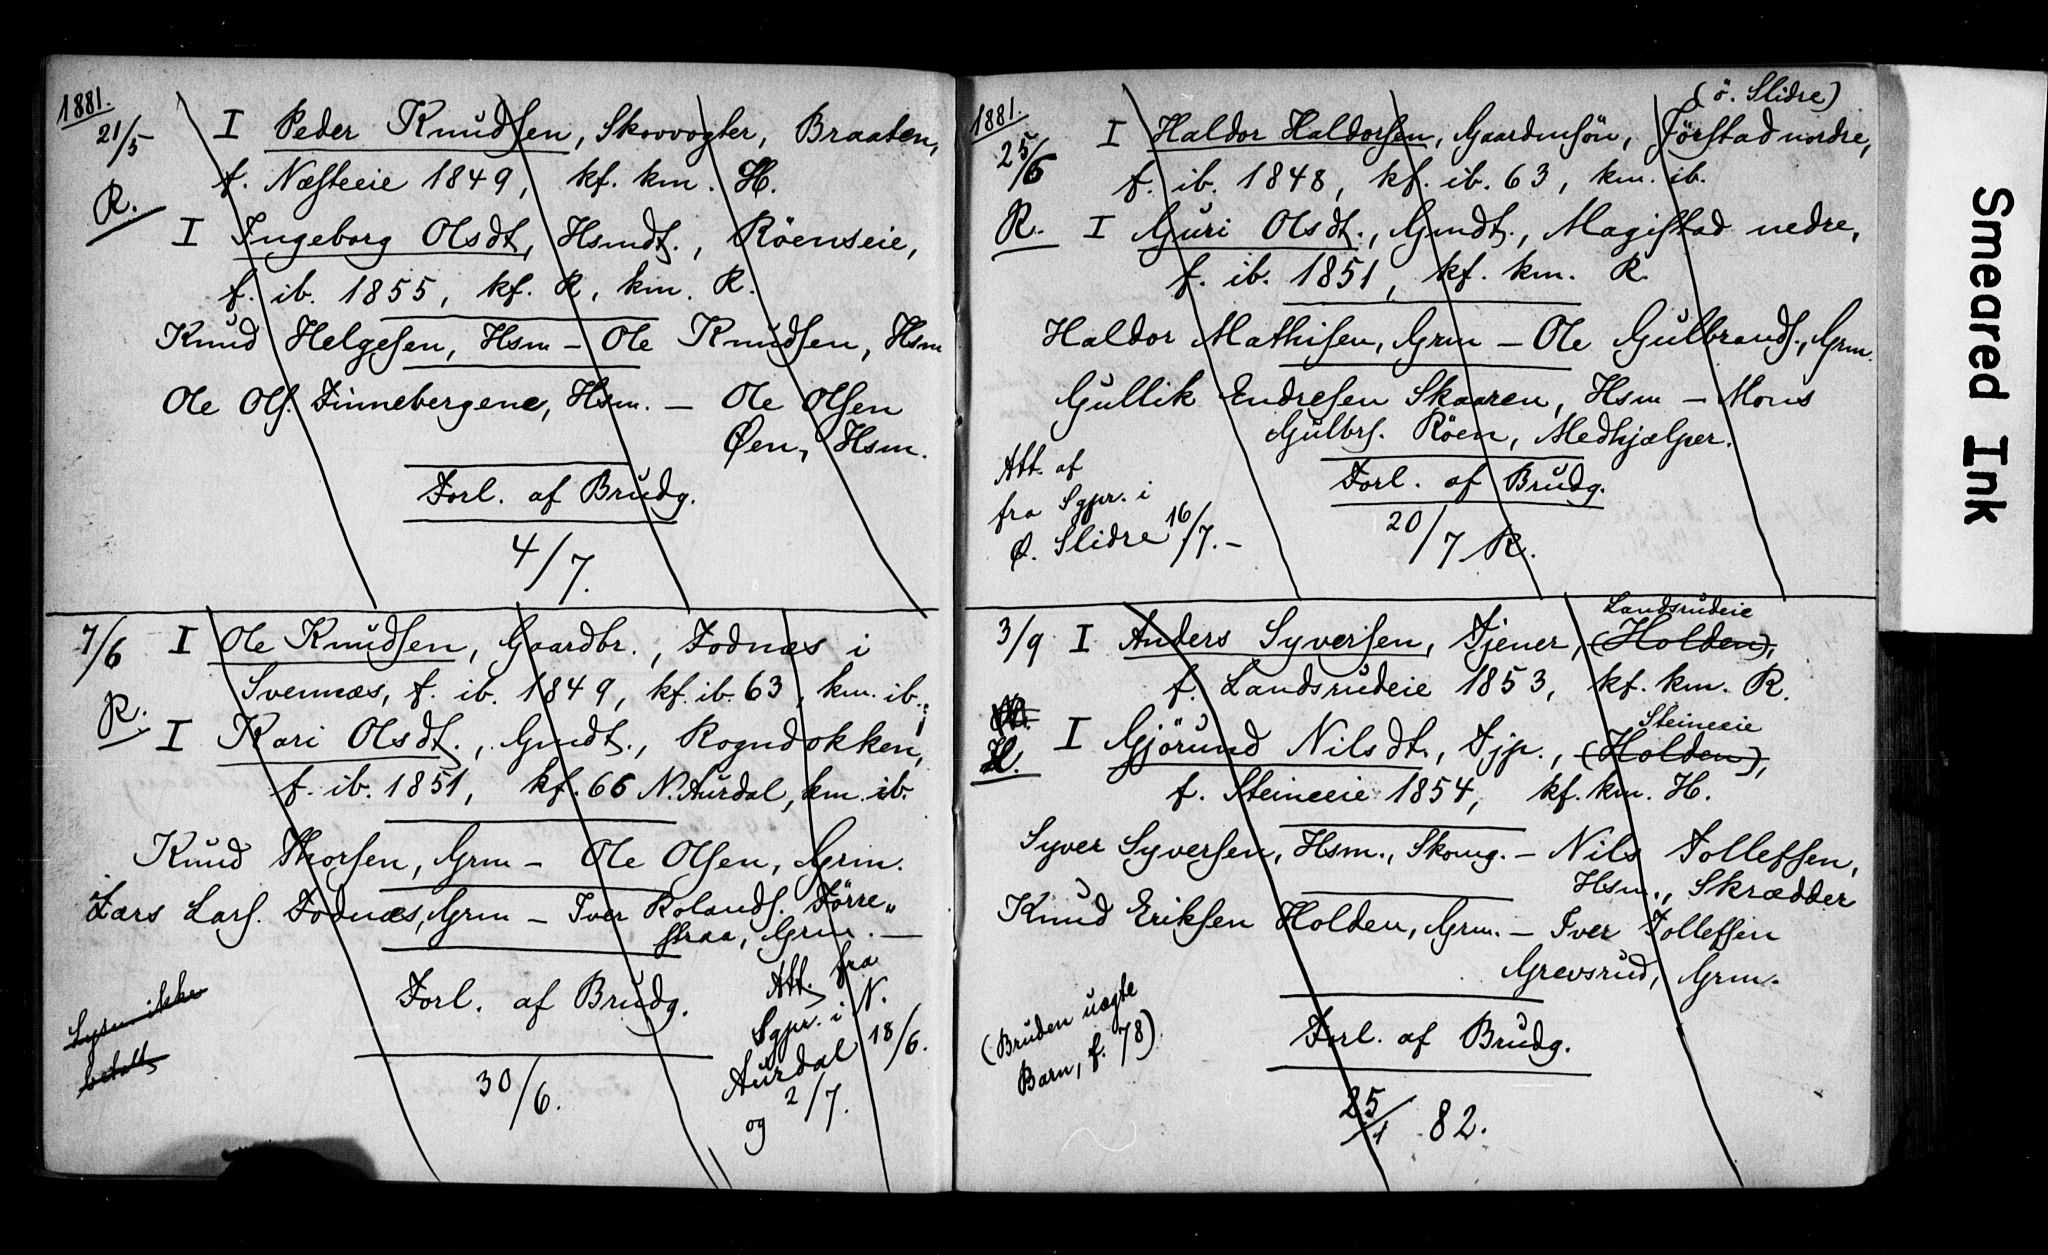 1881.
21/5 I Peder Knudsen, Skovvogter, Braaten,
f. Næsteeie 1849, kf. km. H.
R.
I Ingeborg Olsdt, Hsmdt., Röenseie,
f. ib. 1855, kf. R, km. R.
Knud Helgesen, Hsm – Ole Knudsen, Hsm
Ole Ols. Finnebergene, Hsm. – Ole Olsen
Øen, Hsm.
Forl. af Brudg.
4/7.
7/6 I Ole Knudsen, Gaardbr., Fodnæs i
Svennæs, f. ib. 1849, kf. ib. 63, km. ib.
R.
I Kari Olsdt., Gmdt., Rogndokken,
f. ib. 1851, kf. 66 N. Aurdal, km. ib.
Knud Thorsen, Grm – Ole Olsen, Grm.
Lars Lars. Fodnæs, Grm – Iver Rolands.Förre„
straa, Grm. –
Forl. af Brudg.
30/6.
Att. fra
Sgpr. i N.
Aurdal 18/6.
og 2/7.
Lysn. ikke
betalt
1881.
(ö. Slidre)
25/6 I Haldor Haldorsen, Gaardmsön, Förstad nordre,
f. ib. 1848, kf. ib. 63, km. ib.
R. I Guri Olsdt., Gmdt., Magistad nedre,
f. ib. 1851, kf. km. R.
Haldor Mathisen, Grm – Ole Gulbrands., Grm.
Gullik Endresen Skaaren, Hsm – Mons
Gulbrs. Röen, Medhjælper.
Att. af
fra Sgpr. i
Ø. Slidre 16/7. –
Forl. af Brudg.
20/7 R.
Landsrudeie
3/9 I Anders Syversen, Tjener, (Holden),
f. Landsrudeie 1853, kf. km. R.
Steineeie
H. I Gjörund Nilsdt., Tjp., (Holden),
f. Steineeie 1854, kf. km. H.
Syver Syversen, Hsm., Skomg. – Nils Tollefsen,
Hsm., Skrædder
Knud Eriksen Holden, Grm. – Iver Tollefsen
Grevsrud, Grm.
(Bruden uægte
Barn, f. 78).
Forl. af Brudg.
25/1 82.
Smeared Ink